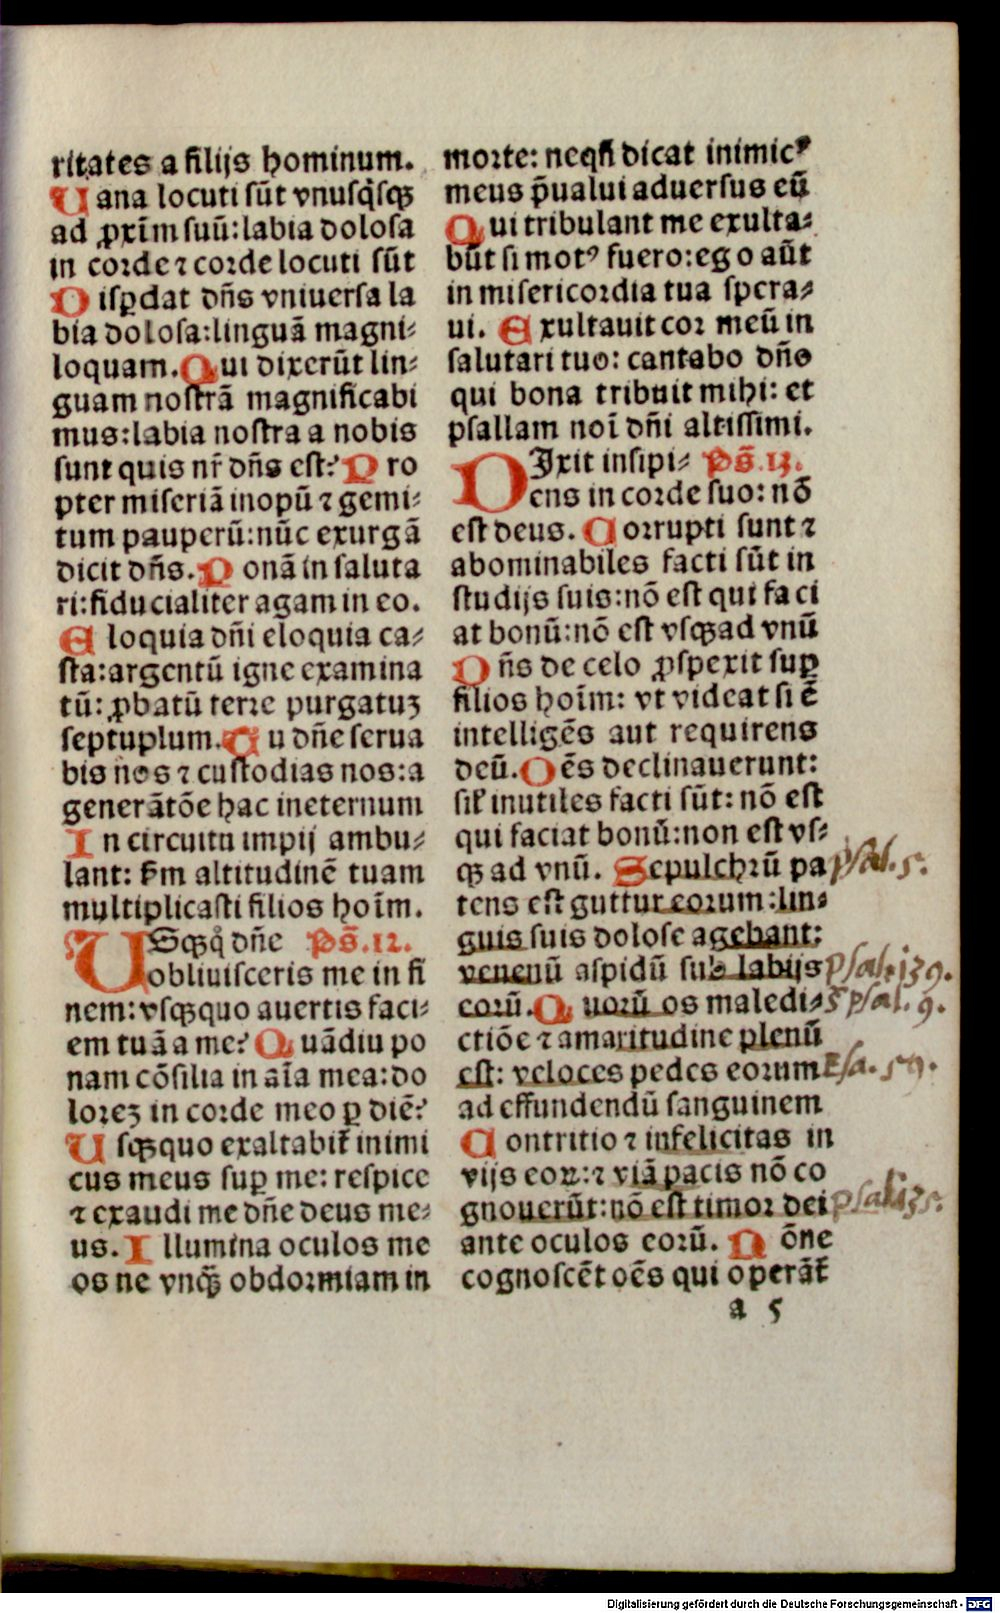 ritates a filijs hominum.
Uana locuti sūt vnusq̄sqꝫ
ad ꝓxīm suū: labia dolosa
in corde ⁊ corde locuti sūt
Disꝑdat dn̄s vniuersa la
bia dolosa: linguā magni⸗
loquam. Qui dixerūt lin⸗
guam nostrā magnificabi
mus: labia nostra a nobis
sunt quis nr̄ dn̄s est? Pro
pter miseriā inopū ⁊ gemi⸗
tum pauperū: nūc exurgā
dicit dn̄s. Ponā in saluta
ri: fiducialiter agam in eo.
Eloquia dn̄i eloquia ca⸗
sta: argentū igne examina
tū: ꝓbatū terre purgatuꝫ
septuplum. Tu dn̄e serua
bis nos ⁊ custodias nos: a
generātōe hac ineternum
In circuitu impij ambu⸗
lant: ẜm altitudinē tuam
multiplicasti filios hoīm.
USqꝫq̊ dn̄e Ps̄.12.
obliuisceris me in fi
nem: vsqꝫquo auertis faci⸗
em tuā a me? Quādiu po
nam cōsilia in aīa mea: do
loreꝫ in corde meo ꝑ diē?
Usqꝫquo exaltabit᷑ inimi
cus meus suꝑ me: respice
⁊ exaudi me dn̄e deus me⸗
us. Illumina oculos me
os ne vnqꝫ̄ obdormiam in
morte: neqn̄ dicat inimicꝰ
meus p̄ualui aduersus eū
Qui tribulant me exulta⸗
būt si motꝰ fuero: ego aūt
in misericordia tua spera⸗
ui. Exultauit cor meū in
salutari tuo: cantabo dn̄o
qui bona tribuit mihi: et
psallam noī dn̄i altissimi.
DIxit insipi⸗ Ps̄.13.
ens in corde suo: nō
est deus. Corrupti sunt ⁊
abominabiles facti sūt in
studijs suis: nō est qui faci
at bonū: nō est vsqꝫ ad vnū
Dn̄s de celo ꝓspexit suꝑ
filios hoīm: vt videat si ē
intelligēs aut requirens
deū. Oēs declinauerunt:
sil̓ inutiles facti sūt: nō est
qui faciat bonū: non est vs⸗
qꝫ ad vnū. Sepulchrū pa
tens est guttur eorum: lin⸗
guis suis dolose agebant:
venenū aspidū sub labijs
eorū. Quorū os maledi⸗
ctiōe ⁊ amaritudine plenū
est: veloces pedes eorum
ad effundendū sanguinem
Contritio ⁊ infelicitas in
vijs eoꝝ: ⁊ viā pacis nō co
gnouerūt: nō est timor dei
ante oculos eorū. Nōne
cognoscēt oēs qui operāt᷑
a 5
psal. 5.
psal. 139.
psal. 9.
Esa. 59.
psal 35.
Digitalisierung gefördert durch die Deutsche Forschungsgemeinschaft - DFG